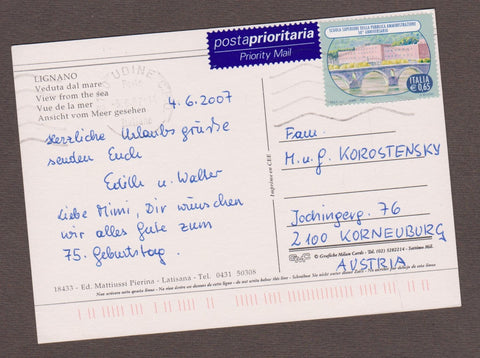 postaprioritaria
Priority Mail
SCUOLA SUPERIORE DELLA PUBBLICA AMMINISTRAZIONE
50° ANNIVERSARIO
ITALIA
€ 0,65
LIGNANO
Veduta dal mare
View from the sea
Vue de la mer
Ansicht vom Meer gesehen
UDINE
4.6.2007
Herzliche Urlaubsgrüße
senden Euch
Edith u. Walter
Liebe Mimi, Dir wünschen
wir alles Gute zum
75. Geburtstag.
Imprimé en CEE
Fam.
M. u. J. KOROSTENSKY
Jochingerg. 76
2100 KORNEUBURG
AUSTRIA
© Grafiche Milan Cards - Tel. (02) 5282214 - Settimo Mil.
18433 - Ed. Mattiussi Pierina - Latisana - Tel. 0431 50308
Non scrivere sotto questa linea - Ne rien écrire au dessous de cette ligne - do not write below this line - Schreiben Sie nicht unter diese Linie